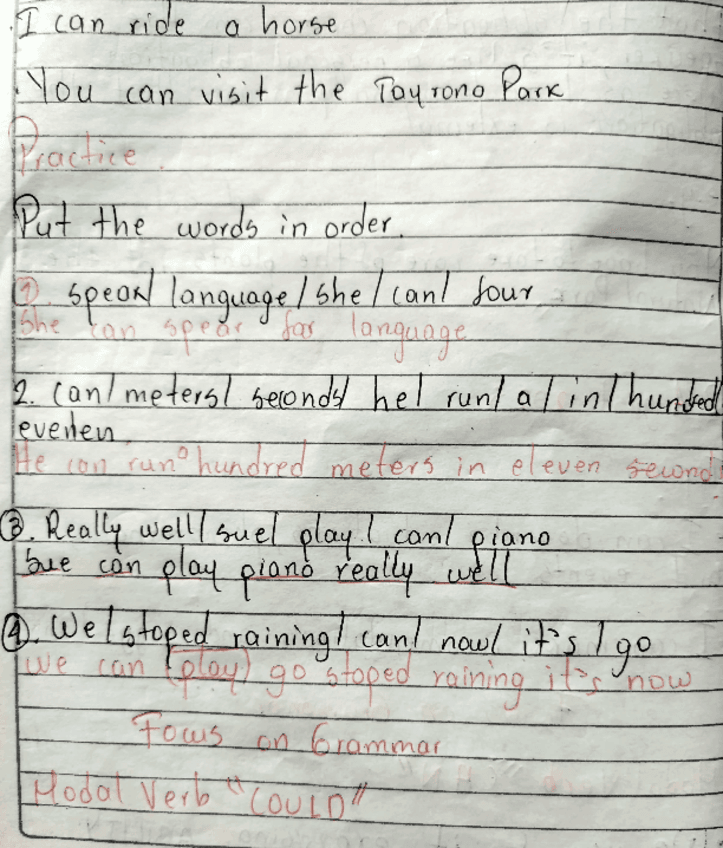 I can ride a horse
You can visit the Tayrona Park
Practice.
Put the words in order.
1. speak/ language/ she/ can/ four
She can spear for language
2. Can/ meters/ seconds/ he/ run/ a/ in/ hundred
evenlen
He can run a hundred meters in eleven seconds
3. Really well/ sue/ play/ can/ piano
sue can play piano really well
4. We/ stoped raining/ can/ now/ it's/ go
we can (play) go stoped raining it's now
Focus on Grammar
Modal Verb "COULD"